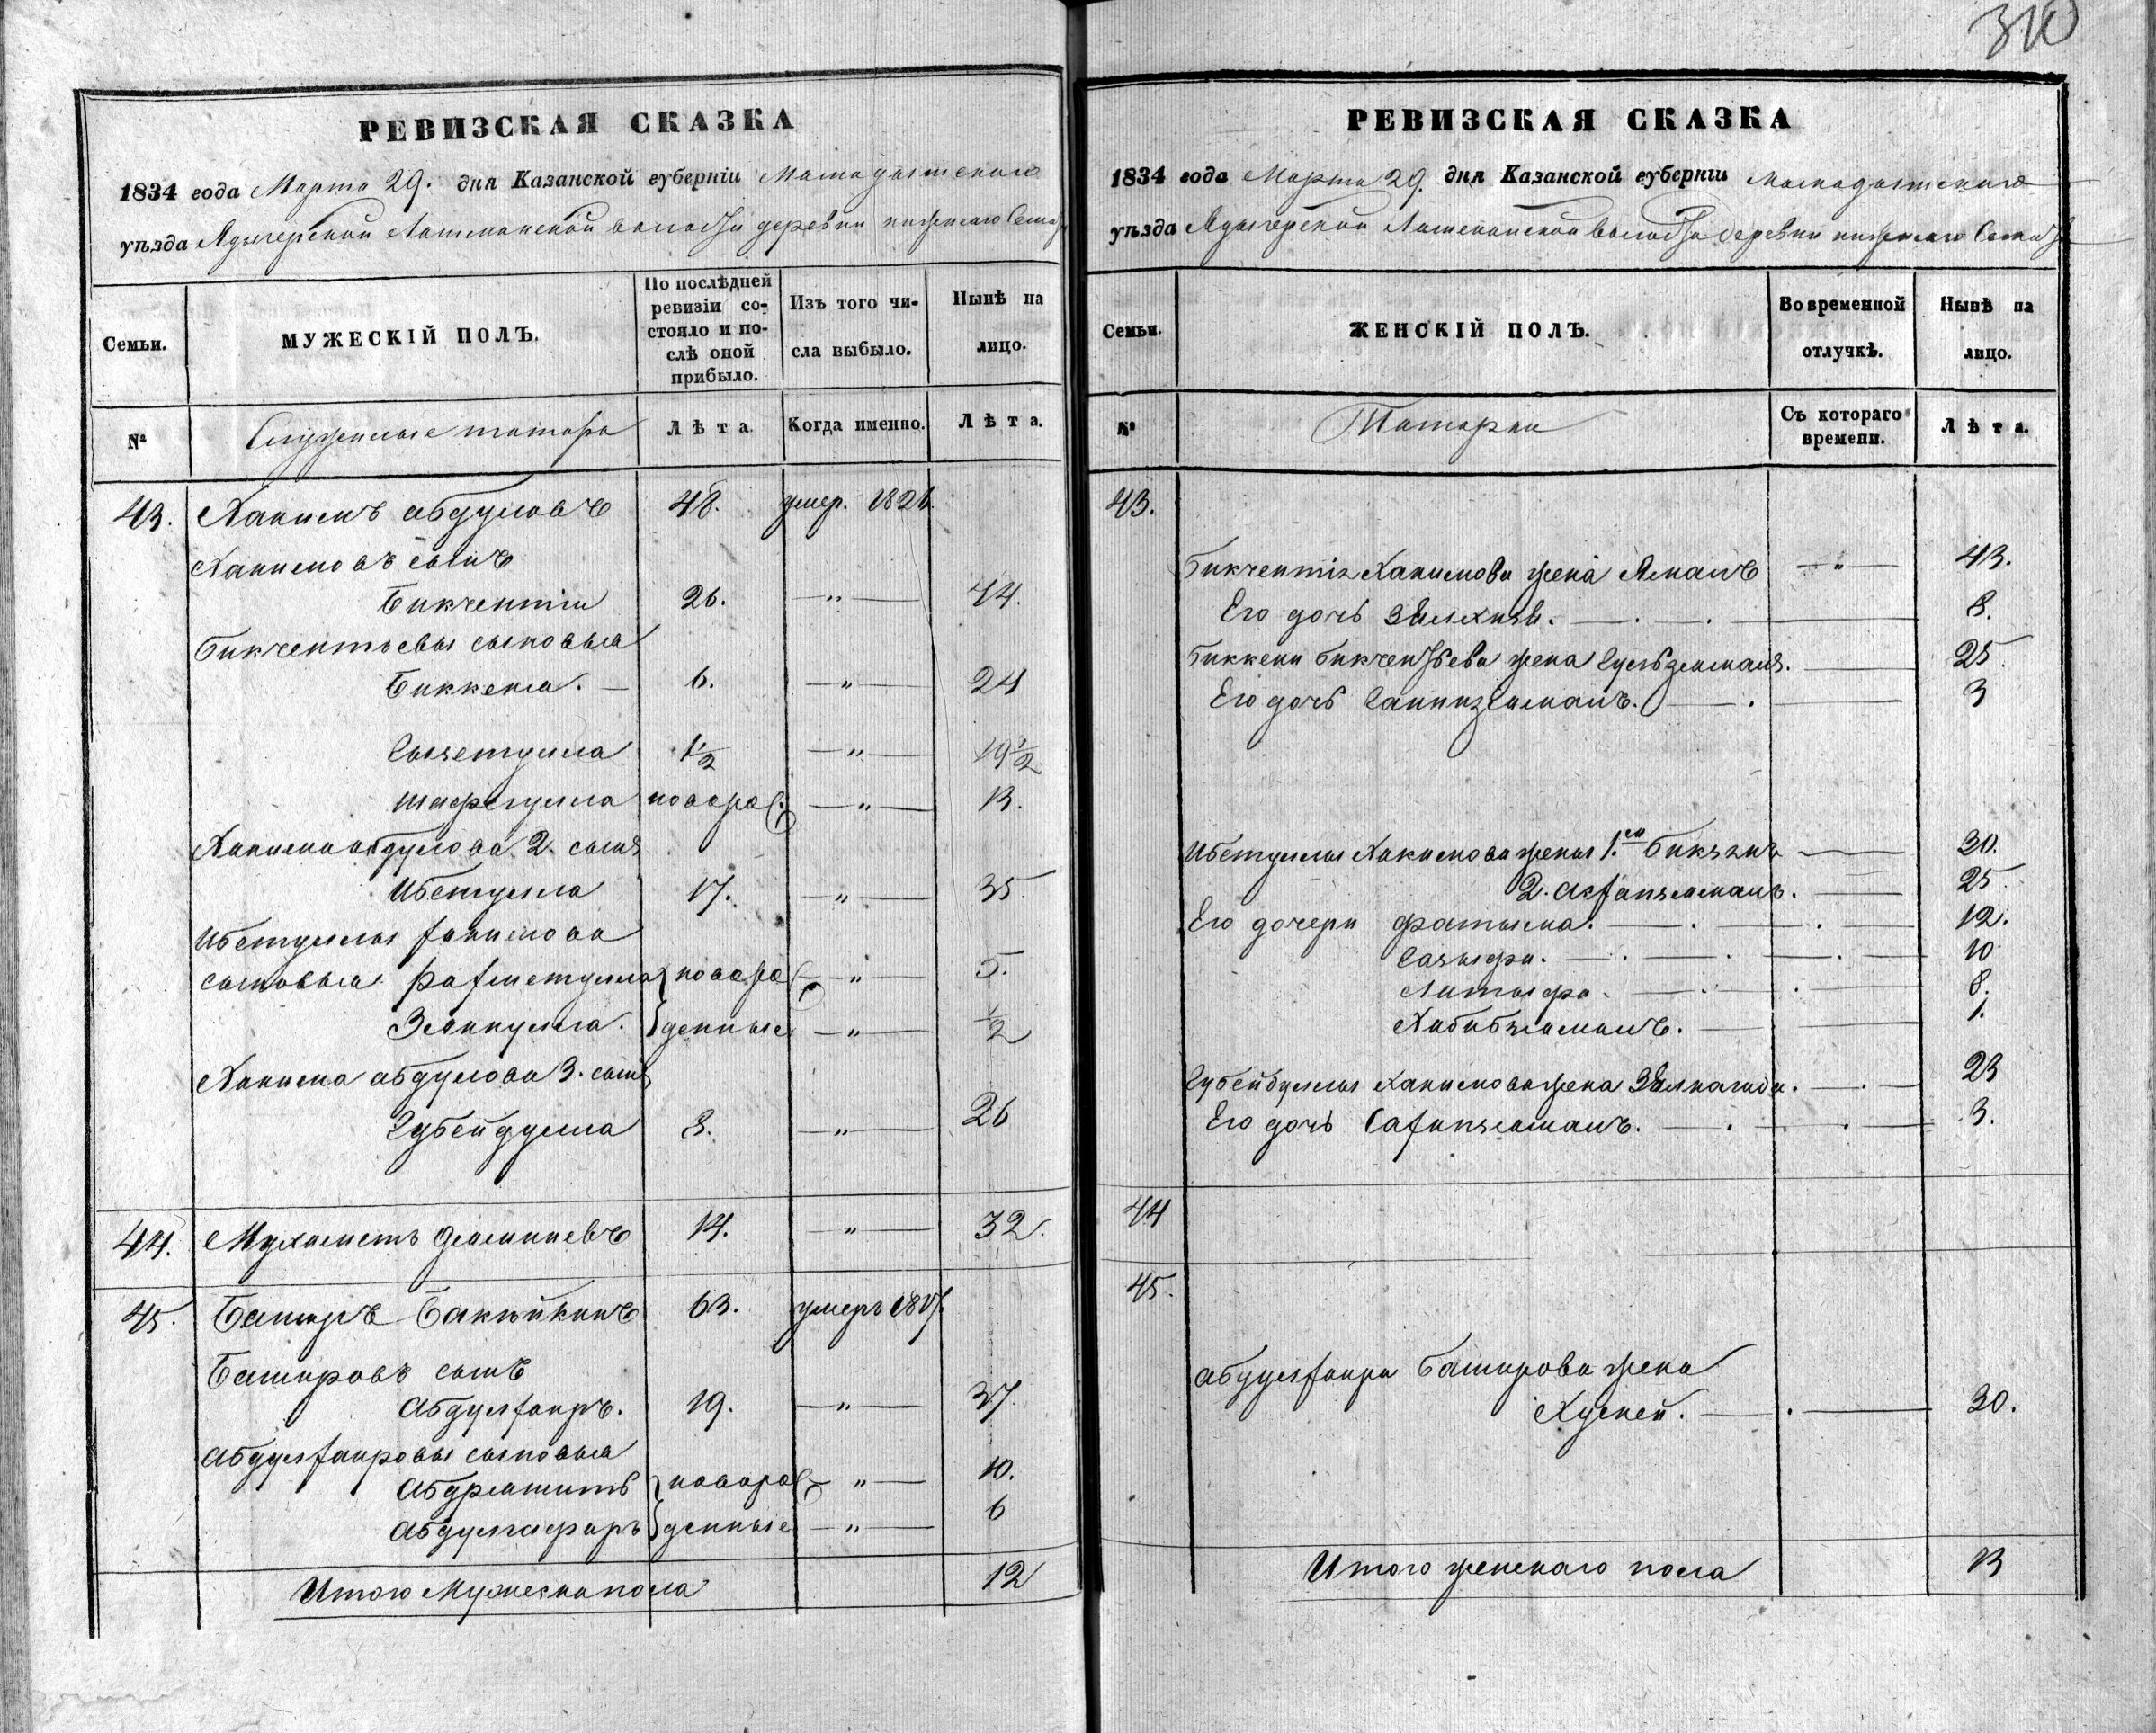 310
РЕВИЗСКАЯ СКАЗКА
1834 года Марта 29. дня Казанской губерніи Мамадышскаго
уѣзда Адаевской Лашманской волости деревни нижнего
Семьи.
МУЖЕСКІЙ ПОЛЪ.
По послѣдней ревизіи состояло и послѣ оной прибыло.
Изъ того числа выбыло.
Нынѣ на лицо.
№
Служилые татара
Лѣта.
Когда именно.
Лѣта.
43. Хакимъ абдуловъ 48. умер. 1826
Хакимовъ сынъ
Бикчентiи 26. — " — 44.
Бикчентьевы сыновья
Биккеня. — 6. — " — 24
Сызетулла 1½ — " — 19½
Шафигулла новорож. — " — 13.
Хакима абдулова 2. сынъ
Ибетулла 17. — " — 35
Ибетуллы хакимова
сыновья Рахметулла новорож — " — 5.
Зеликулла. денные — " — ½
Хакима абдулова 3. сынъ
Губейдулла 8. — " — 26
44. Мухаметь 14. — " — 32.
45. Баширъ Бакѣйкинъ 63. умеръ 1817.
Башировъ сынъ
Абдулхаиръ. 19. — " — 37.
Абдулхаировы сыновья
Абдрашитъ новорож — " — 10.
Абдулгафаръ денные — " — 6
Итого Мужеска пола 12
РЕВИЗСКАЯ СКАЗКА
1834 года Марта 29. дня Казанской губерніи Мамадышскаго
уѣзда Лашманской волости деревни нижнего
Семьи.
ЖЕНСКІЙ ПОЛЪ.
Во временной отлучкѣ.
Нынѣ на лицо.
№
Татарки
Съ котораго времени.
Лѣта.
43.
Бикчентiя Хакимова жена — " — 43.
Его дочь 8.
Биккени Бикчентьева жена Гульземаля. 25.
Его дочь 3
Ибетуллы Хакимова жены 1.ая 30.
2. 25.
Его дочери Фатыма. 12.
Сазыфа. 10
Латыфа. 8.
Хабибзямалъ. 1.
Губейдуллы Хакимова жена 23
Его дочь 3.
44
45.
Абдулхаира Баширова жена
Хуснеи. 30.
Итого женскаго пола 13